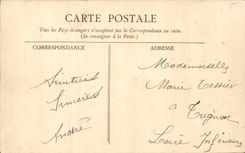 CARTE POSTALE
Tous les Pays étrangers n'acceptent pas la Correspondance au recto.
(Se renseigner à la Poste.)
CORRESPONDANCE
ADRESSE
Mademoiselle
Marie Tessier
Amitiés
à Trignac
Sincères
Loire Inférieure
André